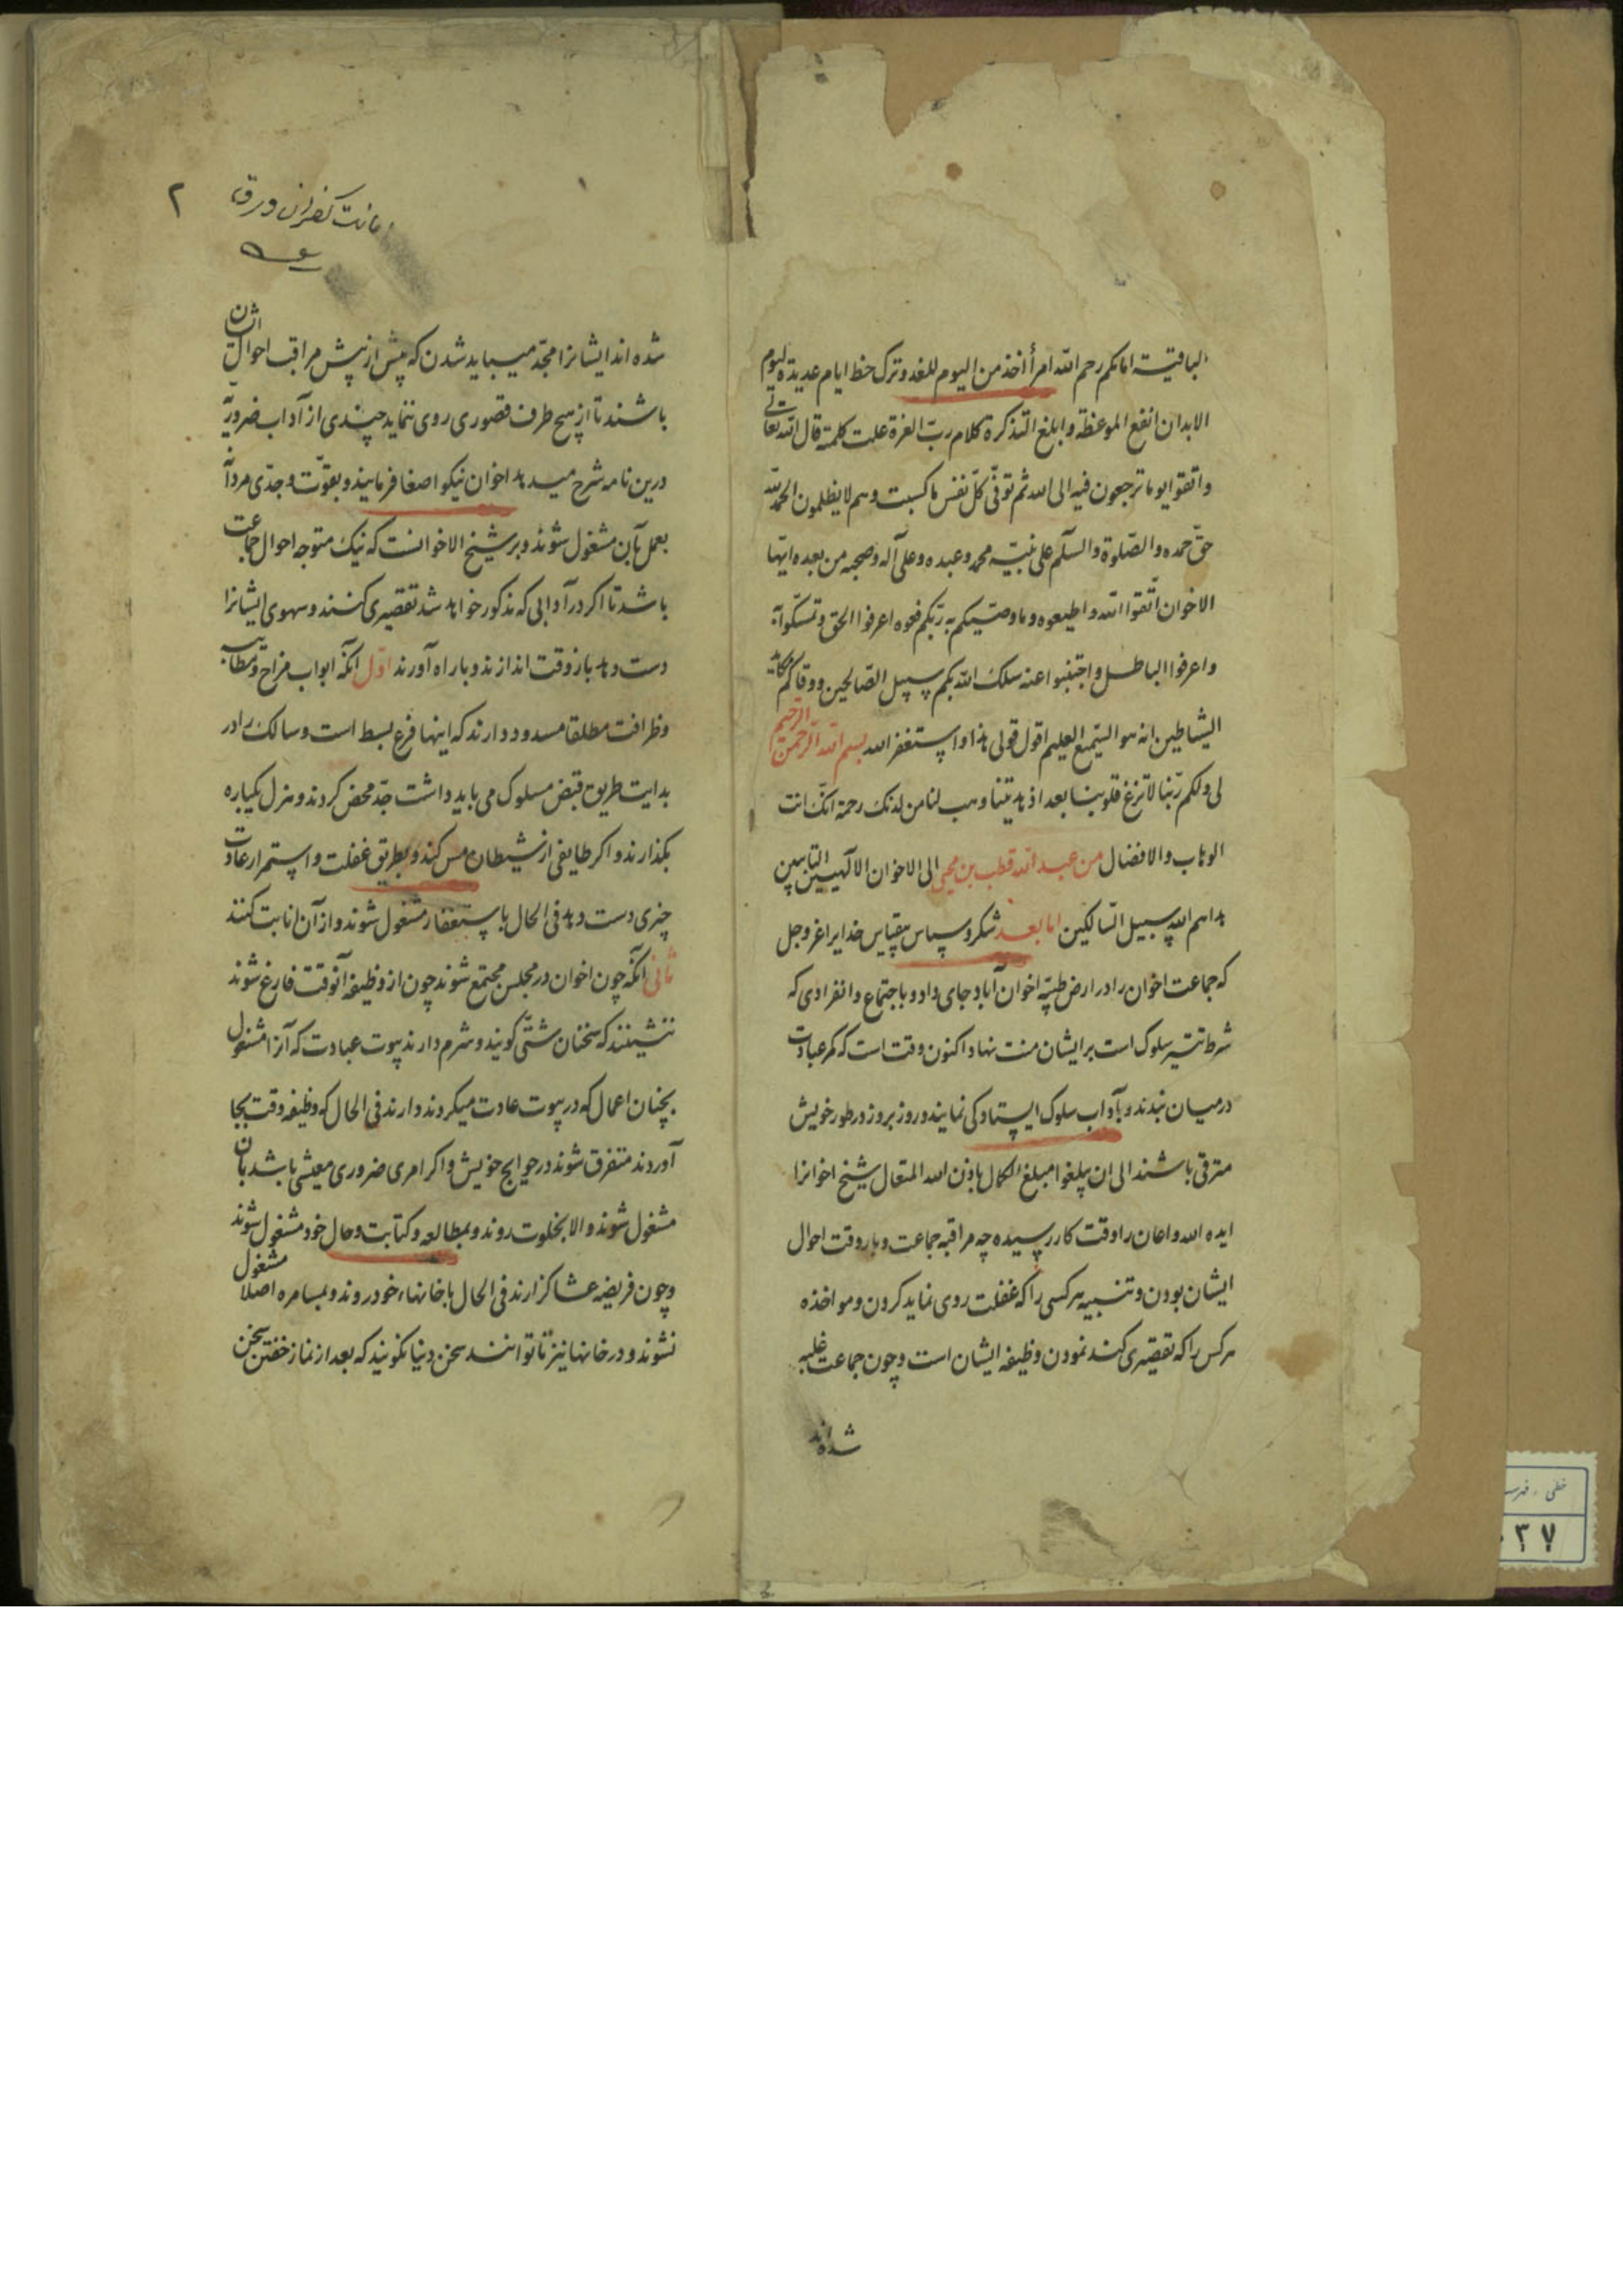 الباقیة امامکم رحم الله امرأ اخذ من الیوم للغد وترک حظ ایام عدیدة لیوم
الابدان انفع الموعظة وابلغ التذکرة کلام ربّ العزة علت کلمته قال الله تعالی
واتقوا یوما ترجعون فیه الی الله ثم توفّی کلّ نفس ما کسبت وهم لا یظلمون الحمد لله
حقّ حمده والصّلوة والسّلم علی نبیّه محمد وعبده وعلی آله وصحبه من بعده ایّها
الاخوان اتّقوا الله واطیعوه وما وصّیکم به ربّکم فعوه اعرفوا الحق وتمسّکوا به
واعرفوا الباطل واجتنبوا عنه سلک الله بکم سبیل الصّالحین ووقاکم مکاید
الشیاطین انه هو السّمیع العلیم اقول قولی هذا واستغفر الله بسم الله الرّحمن الرّحیم
لی ولکم ربّنا لا تزغ قلوبنا بعد اذ هدیتنا وهب لنا من لدنک رحمة انّک انت
الوهاب والافضال من عبد الله قطب بن محیی الی الاخوان الالهیین التایبین
هداهم الله سبیل السّالکین اما بعد شکر و سپاس بیقیاس خدایرا عز وجل
که جماعت اخوان را در ارض طیبّه اخوان آباد جای داد و باجتماع وانفرادی که
شرط تیسر سلوک است بر ایشان منت نهاد اکنون وقت است که کمر عبادت
درمیان بندند و بآداب سلوک ایستادکی نمایند و روز بروز در طور خویش
مترقی باشند الی ان یبلغوا مبلغ الکمال باذن الله المتعال شیخ اخوانرا
ایده الله واعان را وقت کار رسیده چه مراقبه جماعت و بار وقت احوال
ایشان بودن و تنبیه هر کسی را که غفلت روی نماید کردن و مواخذه
هر کس را که تقصیری کند نمودن وظیفه ایشان است و چون جماعت غلبه
شده اند
امانت کفرن ورق
۲
شده اند ایشانرا مجدّ میباید شدن که پیش از پیش مراقب احوال ایشان
باشند تا از هیچ طرف قصوری روی ننماید چندی از آداب ضروریّه
درین نامه شرح میدهد اخوان نیکو اصغا فرمایند و بقوّت و جدّی مردانه
بعمل بآن مشغول شوند و بر شیخ الاخوانست که نیک متوجه احوال جماعت
باشد تا اکر در آدابی که مذکور خواهد شد تقصیری کنند و سهوی ایشانرا
دست دهد باز وقت اندازند و با راه آورند اوّل آنکه ابواب مزاح و مطایبه
و ظرافت مطلقا مسدود دارند که اینها فرع بسط است و سالک را در
بدایت طریق قبض مسلوک می باید داشت جدّ محض کردند و هزل یکباره
بکذارند و اکر طایفی از شیطان مس کند و بطریق غفلت و استمرار عادت
چیزی دست دهد فی الحال باستغفار مشغول شوند و از آن انابت کنند
ثانی آنکه چون اخوان در مجلس مجتمع شوند چون از وظیفه آنوقت فارغ شوند
ننشینند که سخنان شتّی کویند و شرم دارند بیوت عبادت که آنرا مشغول
بچنان اعمال که در بیوت عادت میکردند دارند فی الحال که وظیفه وقت بجا
آوردند متفرق شوند در حوایج خویش و اکر امری ضروری معیشی باشد بآن
مشغول شوند والا بخلوت روند و بمطالعه و کتابت و حال خود مشغول شوند
و چون فریضه عشا کزارند فی الحال با خانهاء خود روند و بمسامره اصلا مشغول
نشوند و در خانها نیز تا توانند سخن دنیا نکویند که بعد از نماز خفتن سخن
خطی
۳۷